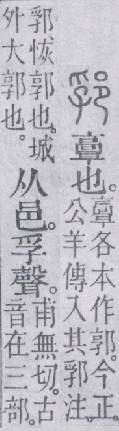 郛
𩫏也。
𩫏各本作郭。今正。
公羊傳入其郛注。
郛恢郭也。城
外大郭也。
从邑。孚聲。
甫無切。古
音在三部。